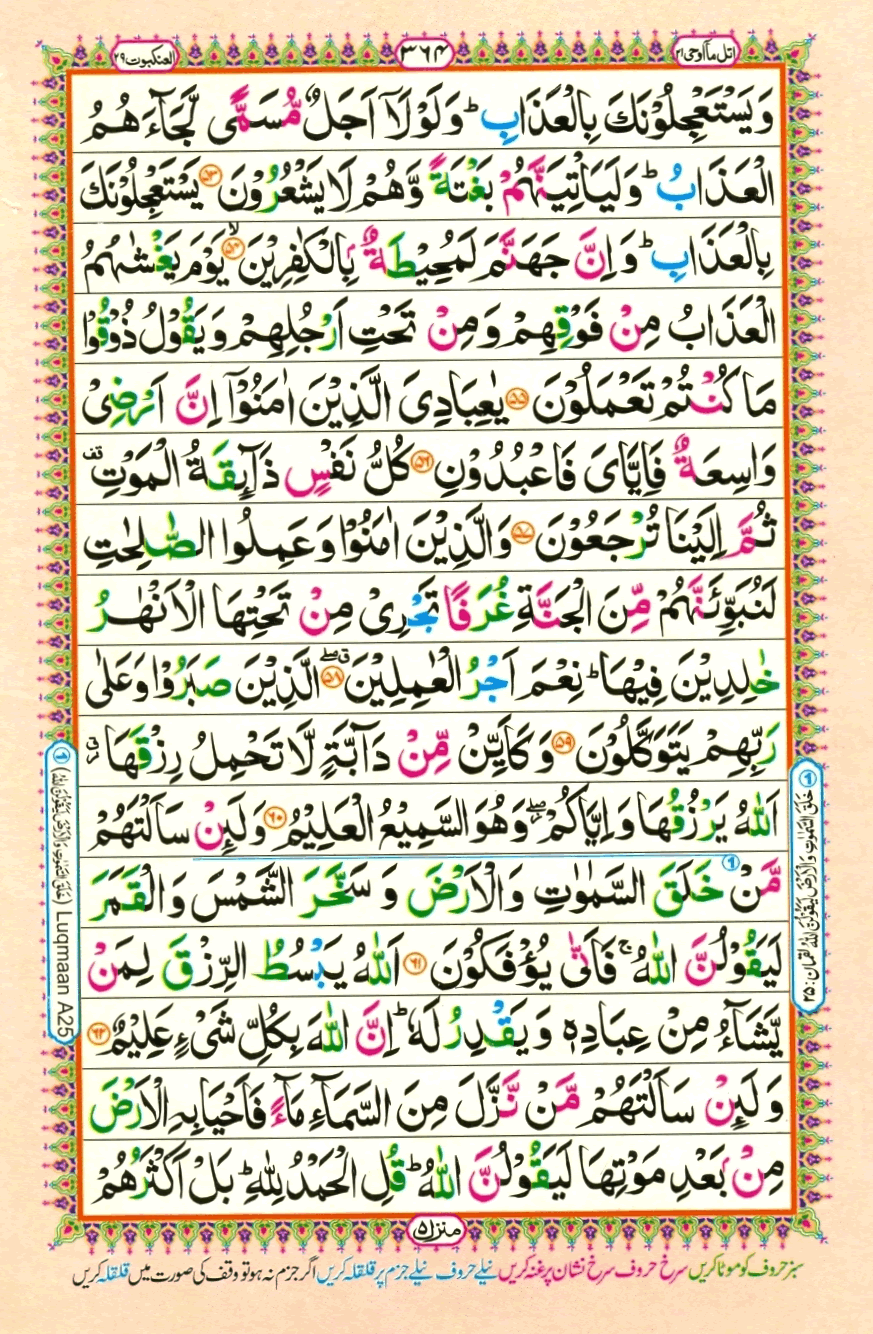 اتل ما اوحی ۲۱
۳۶۴
العنکبوت ۲۹
وَيَسْتَعْجِلُوْنَكَ بِالْعَذَابِ ؕ وَلَوْ لَاۤ اَجَلٌ مُّسَمًّى لَّجَآءَهُمُ
الْعَذَابُ ؕ وَلَيَاْتِيَنَّهُمْ بَغْتَةً وَّهُمْ لَا يَشْعُرُوْنَ ﴿۵۳﴾ يَسْتَعْجِلُوْنَكَ
بِالْعَذَابِ ؕ وَاِنَّ جَهَنَّمَ لَمُحِيْطَةٌۢ بِالْكٰفِرِيْنَ ۙ﴿۵۴﴾ يَوْمَ يَغْشٰىهُمُ
الْعَذَابُ مِنْ فَوْقِهِمْ وَمِنْ تَحْتِ اَرْجُلِهِمْ وَيَقُوْلُ ذُوْقُوْا
مَا كُنْتُمْ تَعْمَلُوْنَ ﴿۵۵﴾ يٰعِبَادِيَ الَّذِيْنَ اٰمَنُوْۤا اِنَّ اَرْضِيْ
وَاسِعَةٌ فَاِيَّايَ فَاعْبُدُوْنِ ﴿۵۶﴾ كُلُّ نَفْسٍ ذَآئِقَةُ الْمَوْتِ قف
ثُمَّ اِلَيْنَا تُرْجَعُوْنَ ﴿۵۷﴾ وَالَّذِيْنَ اٰمَنُوْا وَعَمِلُوا الصّٰلِحٰتِ
لَنُبَوِّئَنَّهُمْ مِّنَ الْجَنَّةِ غُرَفًا تَجْرِيْ مِنْ تَحْتِهَا الْاَنْهٰرُ
خٰلِدِيْنَ فِيْهَا ؕ نِعْمَ اَجْرُ الْعٰمِلِيْنَ ﴿۵۸﴾ۖق الَّذِيْنَ صَبَرُوْا وَعَلٰى
رَبِّهِمْ يَتَوَكَّلُوْنَ ﴿۵۹﴾ وَكَاَيِّنْ مِّنْ دَآبَّةٍ لَّا تَحْمِلُ رِزْقَهَا
اَللّٰهُ يَرْزُقُهَا وَاِيَّاكُمْ ۖ وَهُوَ السَّمِيْعُ الْعَلِيْمُ ﴿۶۰﴾ وَلَئِنْ سَاَلْتَهُمْ
مَّنْ خَلَقَ السَّمٰوٰتِ وَالْاَرْضَ وَسَخَّرَ الشَّمْسَ وَالْقَمَرَ
لَيَقُوْلُنَّ اللّٰهُ ۚ فَاَنّٰى يُؤْفَكُوْنَ ﴿۶۱﴾ اَللّٰهُ يَبْسُطُ الرِّزْقَ لِمَنْ
يَّشَآءُ مِنْ عِبَادِهٖ وَيَقْدِرُ لَهٗ ؕ اِنَّ اللّٰهَ بِكُلِّ شَيْءٍ عَلِيْمٌ ﴿۶۲﴾
وَلَئِنْ سَاَلْتَهُمْ مَّنْ نَّزَّلَ مِنَ السَّمَآءِ مَآءً فَاَحْيَا بِهِ الْاَرْضَ
مِنْۢ بَعْدِ مَوْتِهَا لَيَقُوْلُنَّ اللّٰهُ ؕ قُلِ الْحَمْدُ لِلّٰهِ ؕ بَلْ اَكْثَرُهُمْ
① خَلَقَ السَّمٰوٰتِ وَالْاَرْضَ لَيَقُوْلُنَّ اللّٰهُ لقمان: ۲۵
① (خَلَقَ السَّمٰوٰتِ وَالْاَرْضَ لَيَقُوْلُنَّ اللّٰهُ) Luqmaan A25
منزل ۵
سبز حروف کو موٹا کریں سرخ حروف سرخ نشان پر غنہ کریں نیلے حروف نیلے جزم پر قلقلہ کریں اگر جزم نہ ہو تو وقف کی صورت میں قلقلہ کریں